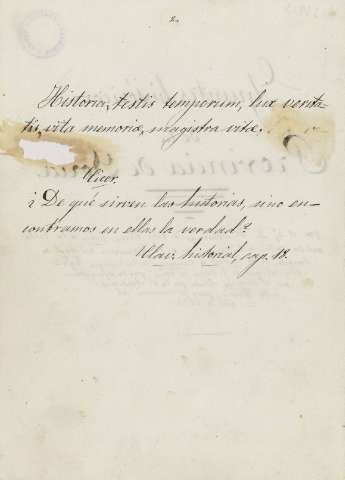 2.
Historia, testis temporum, lux verita-
tis, vita memoriæ, magistra vitæ.
Cicer.
¿De qué sirven las historias, sino en-
contramos en ellas la verdad?
Clav. historial, cap. 18.